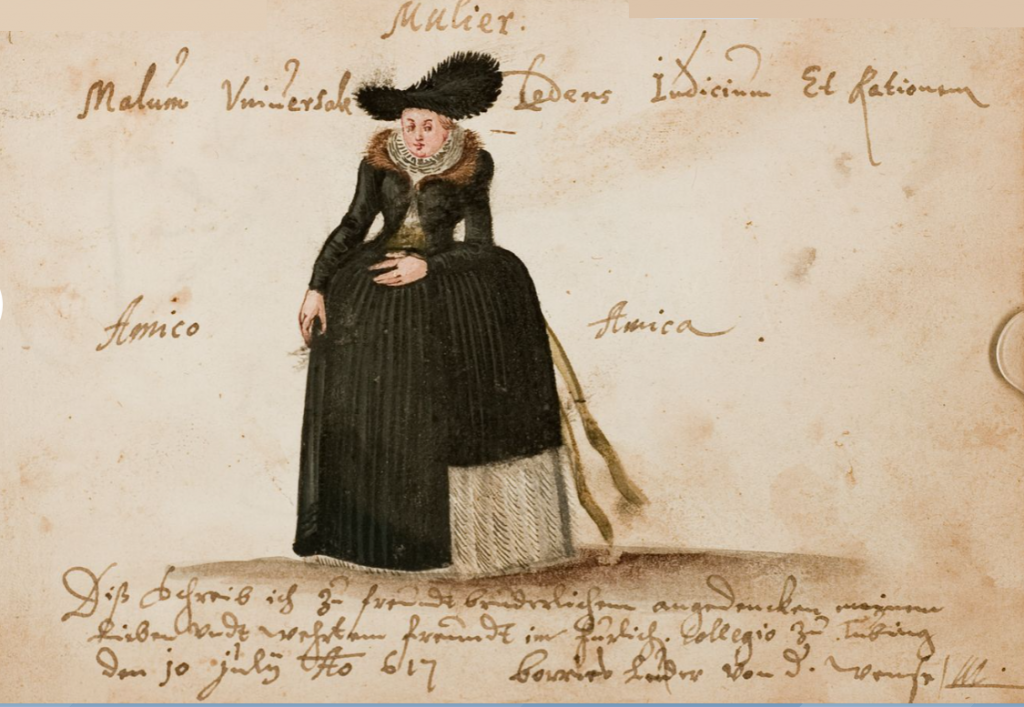 Mulier.
Malum Vniuersale Ledens Iudicium Et Rationem
Amico Amica.
Diß Schreib ich zu freundt bruderlichem angedencken meinem
lieben vndt wehrtem freundt in fürlich. Collegio zu Tubing
den 10 Julij Ao 617 borries von d. Wense